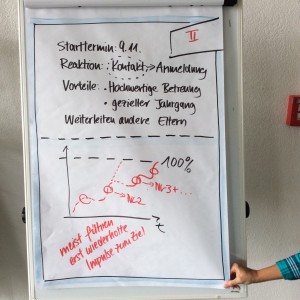 II
Starttermin: 9.11.
Reaktion: Kontakt → Anmeldung
Vorteile: • Hochwertige Betreuung
• gezieller Jahrgang
Weiterleiten andere Eltern
100%
Nr. 2
Nr. 3 + ...
t
meist führen
erst wiederholte
Impulse zum Ziel